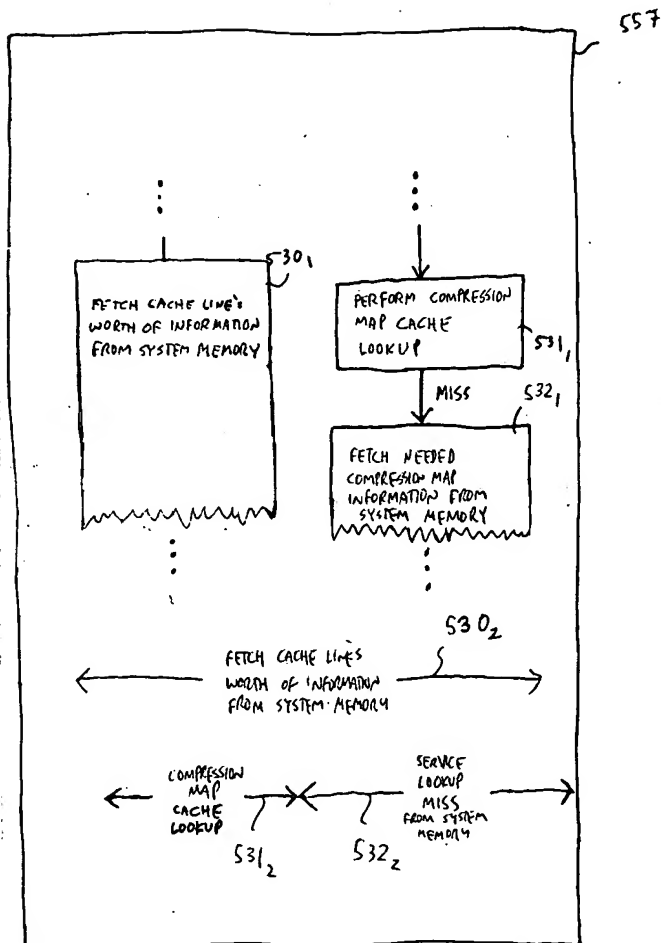 557
530₁
FETCH CACHE LINE'S
WORTH OF INFORMATION
FROM SYSTEM MEMORY
PERFORM COMPRESSION
MAP CACHE
LOOKUP
531₁
MISS
532₁
FETCH NEEDED
COMPRESSION MAP
INFORMATION FROM
SYSTEM MEMORY
530₂
FETCH CACHE LINE'S
WORTH OF INFORMATION
FROM SYSTEM MEMORY
COMPRESSION
MAP
CACHE
LOOKUP
531₂
SERVICE
LOOKUP
MISS
FROM SYSTEM
MEMORY
532₂